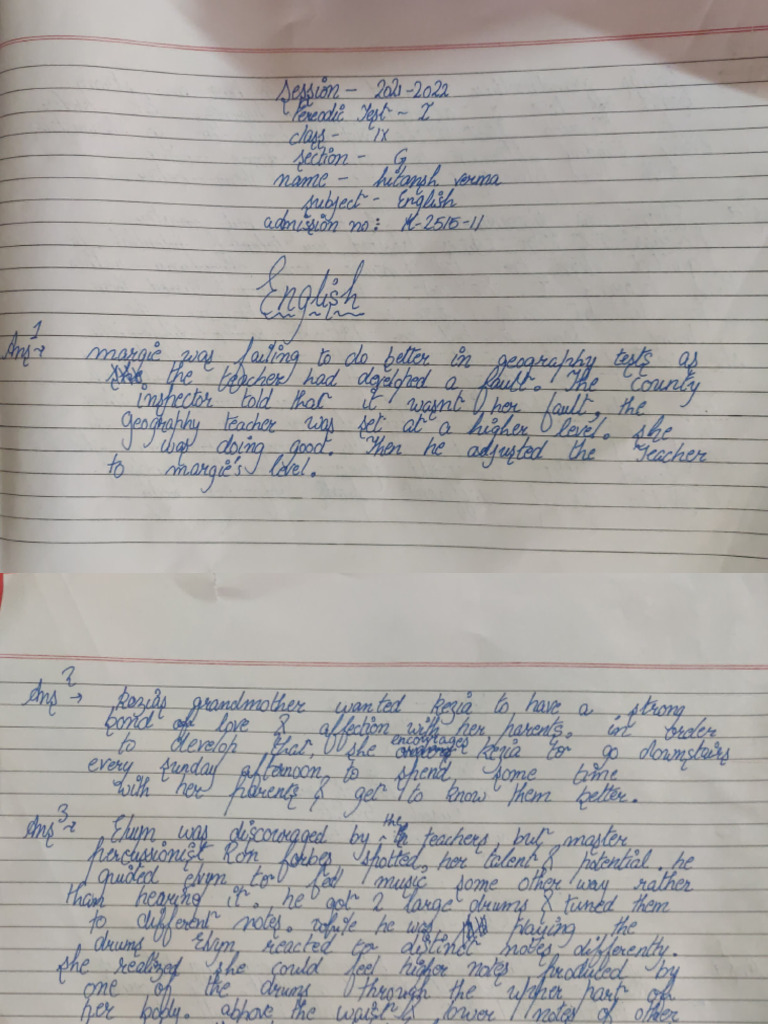 Session - 2021-2022
Periodic Test - I
class - IX
section - G
name - hitansh verma
subject - English
admission no: K-2515-11
English
Ans 1 → margie was failing to do better in geography tests as
the teacher had developed a fault. The county
inspector told that it wasnt her fault, the
geography teacher was set at a higher level. she
was doing good. Then he adjusted the Teacher
to margie's level.
Ans 2 → kezias grandmother wanted kezia to have a strong
bond of love & affection with her parents. in order
to develop that, she encourages kezia to go downstairs
every sunday afternoon to spend some time
with her parents & get to know them better.
Ans 3 → Elym was discouraged by the teachers, but master
percussionist Ron forbes spotted her talent & potential. he
guided evlym to feel music some other way rather
than hearing it. he got 2 large drums & tuned them
to different notes. while he was playing the
drums Evlym reacted to distinct notes differently.
she realized she could feel higher notes produced by
one of the drums through the upper part of
her body. abhove the waist & lower notes of other